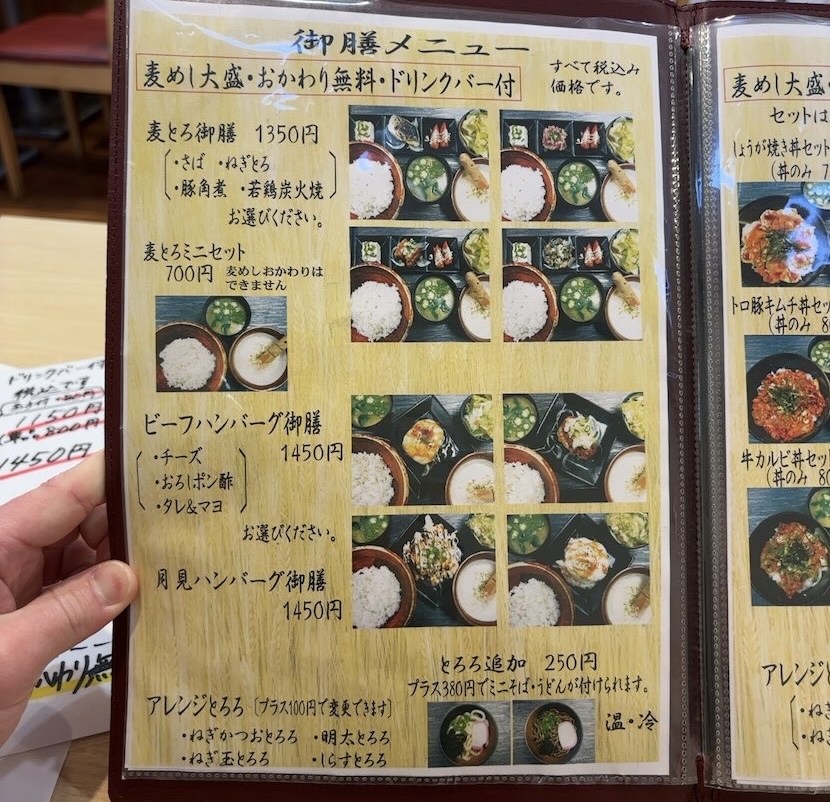 御膳メニュー
麦めし大盛・おかわり無料・ドリンクバー付
すべて税込み
価格です。
麦とろ御膳 1350円
・さば ・ねぎとろ
・豚角煮 ・若鶏炭火焼
お選びください。
麦とろミニセット
700円 麦めしおかわりは
できません
ビーフハンバーグ御膳
1450円
・チーズ
・おろしポン酢
・タレ&マヨ
お選びください。
月見ハンバーグ御膳
1450円
とろろ追加 250円
プラス380円でミニそば・うどんが付けられます。
温・冷
アレンジとろろ〔プラス100円で変更できます〕
・ねぎかつおとろろ ・明太とろろ
・ねぎ玉とろろ ・しらすとろろ
麦めし大盛・
セットは
しょうが焼き丼セット
(丼のみ 7
トロ豚キムチ丼セッ
(丼のみ 8
牛カルビ丼セッ
(丼のみ 80
アレンジと
・ねぎ
・ねぎ
ドリンクバー付
税込です
1150円
800円
1450円